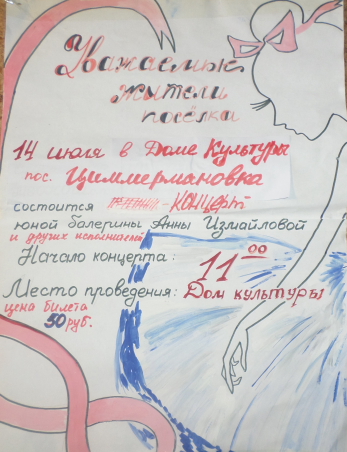 Уважаемые
жители
посёлка
14 июля в Доме Культуры
пос. Циммермановка
состоится - концерт
юной балерины Анны Измайловой
и других исполнителей
Начало концерта: 11 00
Место проведения: Дом культуры
цена билета
50 руб.